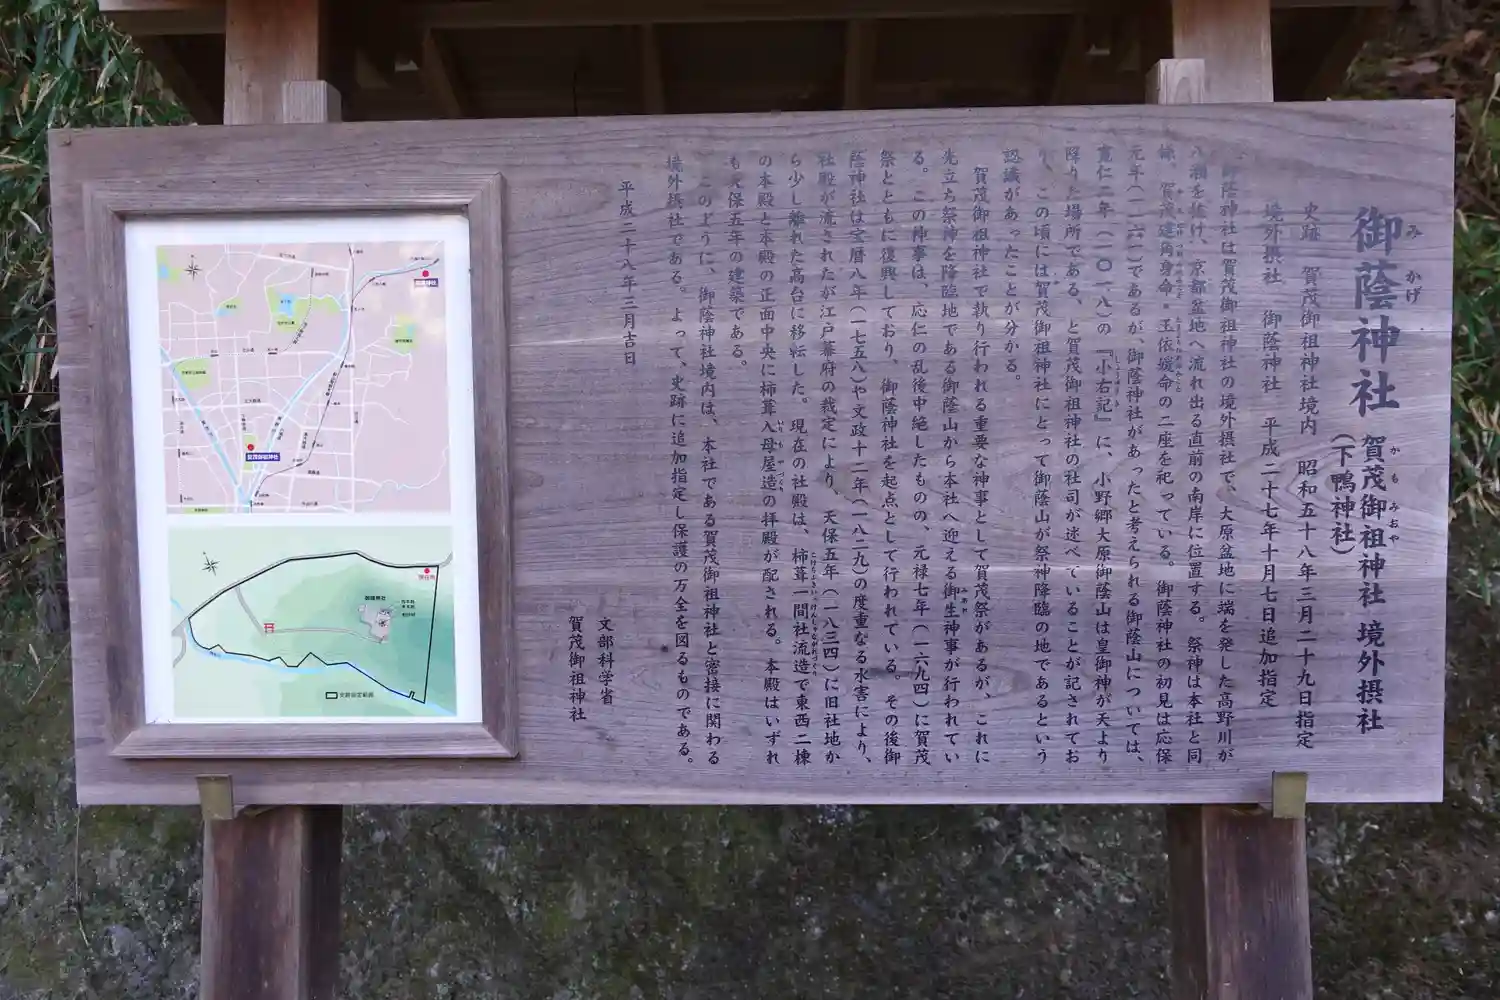 御蔭神社 賀茂御祖神社 境外摂社
(下鴨神社)
史跡 賀茂御祖神社境内 昭和五十八年三月二十九日指定
境外摂社 御蔭神社 平成二十七年十月七日追加指定
御蔭神社は賀茂御祖神社の境外摂社で、大原盆地に端を発した高野川が
八瀬を抜け、京都盆地へ流れ出る直前の南岸に位置する。祭神は本社と同
様、賀茂建角身命・玉依媛命の二座を祀っている。御蔭神社の初見は応保
元年(一一六一)であるが、御蔭神社があったと考えられる御蔭山については、
寛仁二年(一〇一八)の『小右記』に、小野郷大原御蔭山は皇御神が天より
降りた場所である、と賀茂御祖神社の社司が述べていることが記されてお
り、この頃には賀茂御祖神社にとって御蔭山が祭神降臨の地であるという
認識があったことが分かる。
賀茂御祖神社で執り行われる重要な神事として賀茂祭があるが、これに
先立ち祭神を降臨地である御蔭山から本社へ迎える御生神事が行われてい
る。この神事は、応仁の乱後中絶したものの、元禄七年(一六九四)に賀茂
祭とともに復興しており、御蔭神社を起点として行われている。その後御
蔭神社は宝暦八年(一七五八)や文政十二年(一八二九)の度重なる水害により、
社殿が流されたが江戸幕府の裁定により、天保五年(一八三四)に旧社地か
ら少し離れた高台に移転した。現在の社殿は、柿葺一間社流造で東西二棟
の本殿と本殿の正面中央に柿葺入母屋造の拝殿が配される。本殿はいずれ
も天保五年の建築である。
このように、御蔭神社境内は、本社である賀茂御祖神社と密接に関わる
境外摂社である。よって、史跡に追加指定し保護の万全を図るものである。
平成二十八年三月吉日
文部科学省
賀茂御祖神社
御蔭神社
賀茂御祖神社
現在地
御蔭神社
史跡指定範囲